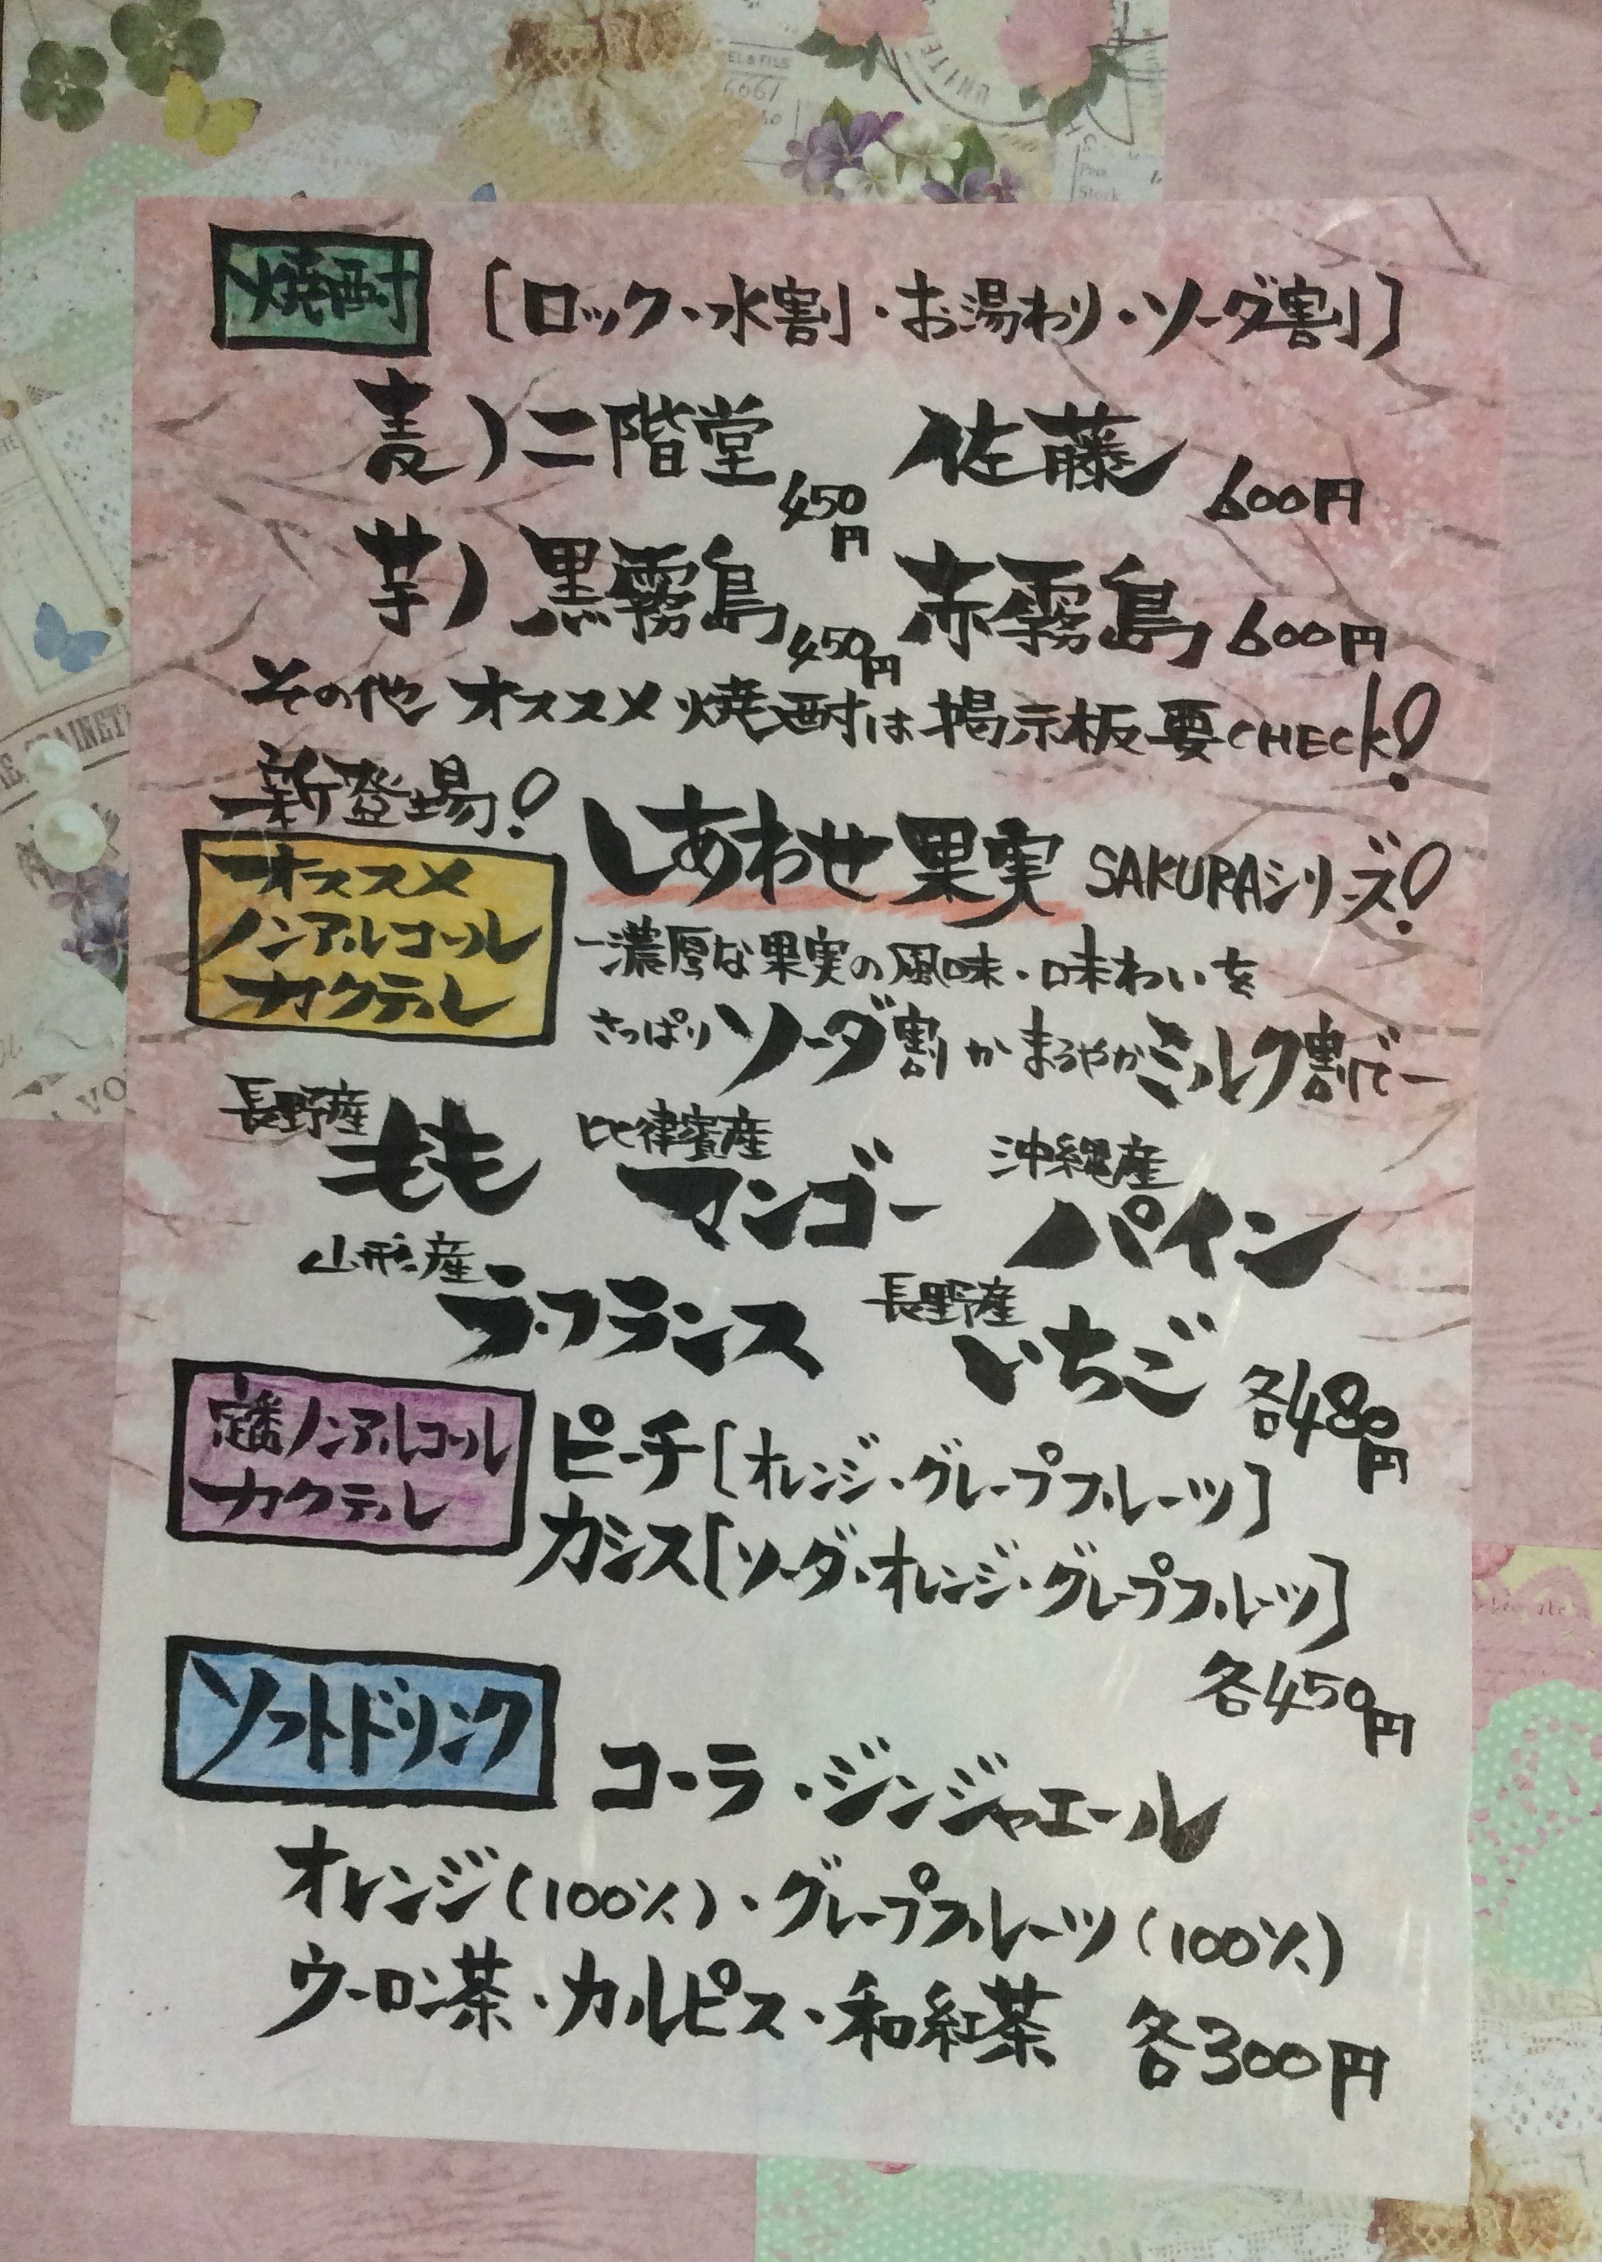 焼酎 [ロック・水割・お湯わり・ソーダ割]
麦)二階堂 450円 佐藤 600円
芋)黒霧島 450円 赤霧島 600円
その他 オススメ 焼酎は掲示板要CHECK!
新登場!
オススメ
ノンアルコール
カクテル
しあわせ果実 SAKURAシリーズ!
-濃厚な果実の風味・味わいを
さっぱりソーダ割かまろやかミルク割で-
長野産 もも 比律賓産 マンゴー 沖縄産 パイン
山形産 ラ・フランス 長野産 いちご 各480円
定番ノンアルコール
カクテル
ピーチ[オレンジ・グレープフルーツ]
カシス[ソーダ・オレンジ・グレープフルーツ]
各450円
ソフトドリンク
コーラ・ジンジャエール
オレンジ(100%)・グレープフルーツ(100%)
ウーロン茶・カルピス・和紅茶 各300円